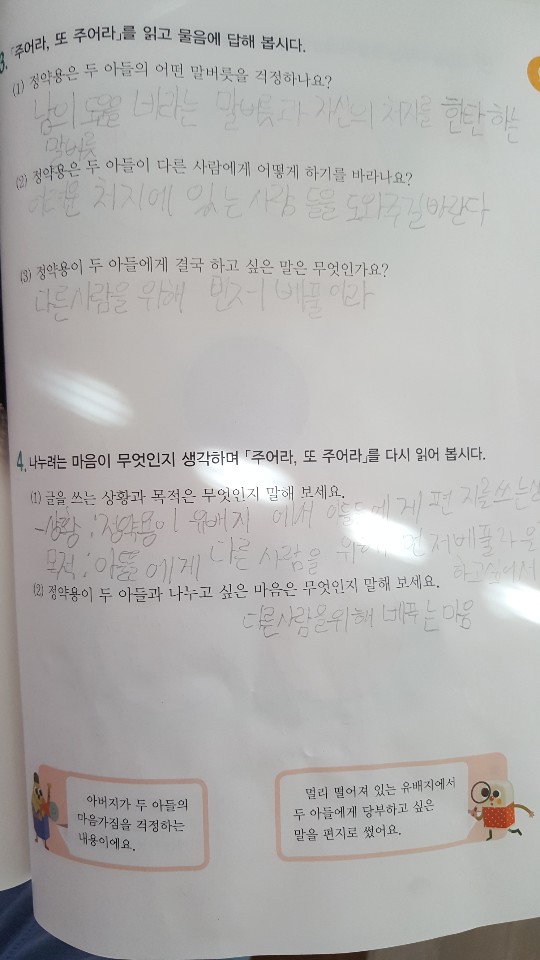 3. 「주어라, 또 주어라」를 읽고 물음에 답해 봅시다.
(1) 정약용은 두 아들의 어떤 말버릇을 걱정하나요?
남의 도움을 바라는 말버릇과 자신의 처지를 한탄 하는
말버릇
(2) 정약용은 두 아들이 다른 사람에게 어떻게 하기를 바라나요?
어려운 처지에 있는 사람 들을 도와주길 바란다
(3) 정약용이 두 아들에게 결국 하고 싶은 말은 무엇인가요?
다른사람을 위해 먼저 베풀어라
4. 나누려는 마음이 무엇인지 생각하며 「주어라, 또 주어라」를 다시 읽어 봅시다.
(1) 글을 쓰는 상황과 목적은 무엇인지 말해 보세요.
-상황 : 정약용이 유배지 에서 아들들에게 편지를쓰는
목적 : 아들들에게 다른 사람을 위해 먼저베풀라
하고싶어서
(2) 정약용이 두 아들과 나누고 싶은 마음은 무엇인지 말해 보세요.
다른사람을위해 베푸는 마음
아버지가 두 아들의
마음가짐을 걱정하는
내용이에요.
멀리 떨어져 있는 유배지에서
두 아들에게 당부하고 싶은
말을 편지로 썼어요.